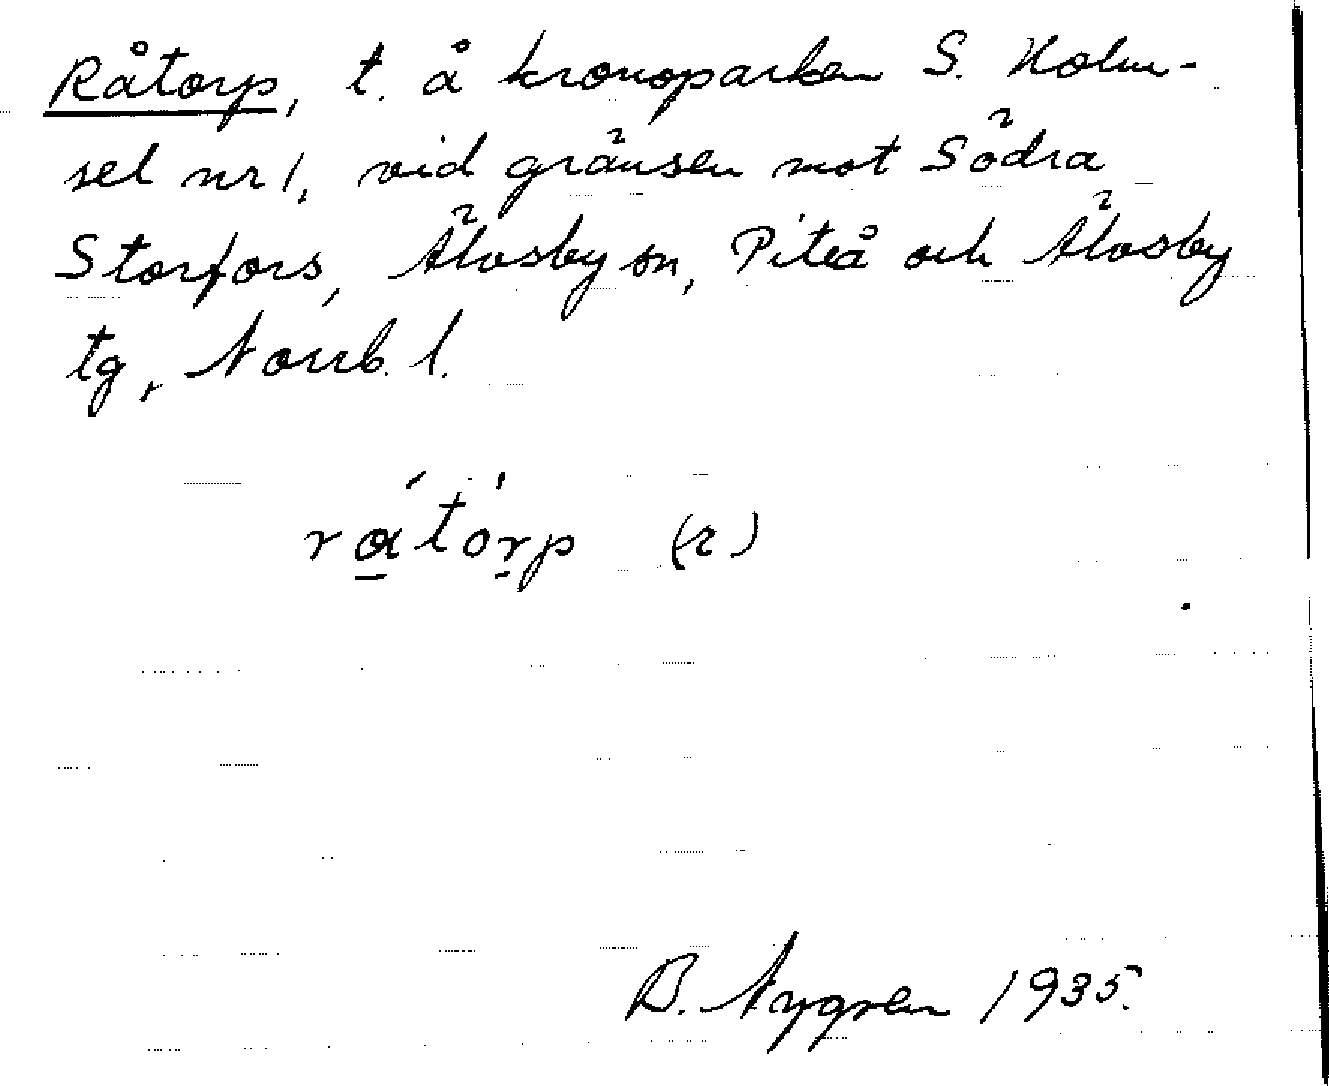 Råtorp, t. å kronoparken S. Holm-
sel nr 1, vid gränsen mot Södra
Storfors, Älvsby sn, Piteå och Älvsby
tg, Norrb. l.
råtórp (2)
B. Nygren 1935.